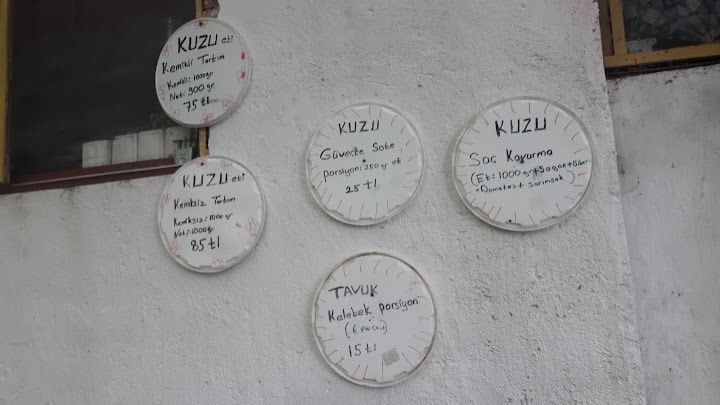 KUZU eti
Kemikli Tartım
Kemikli: 1000gr
Net: 900 gr
75 tl
KUZU eti
Kemiksiz Tartım
Kemiksiz: 1000 gr
Net: 1000gr
85 tl
KUZU
Güveçte Sote
porsiyon: 250 gr et
25 tl
KUZU
Saç Kavurma
(Et: 1000 gr+Soğan+Biber
+Domates+Sarımsak)
TAVUK
Kelebek porsiyon
15 tl